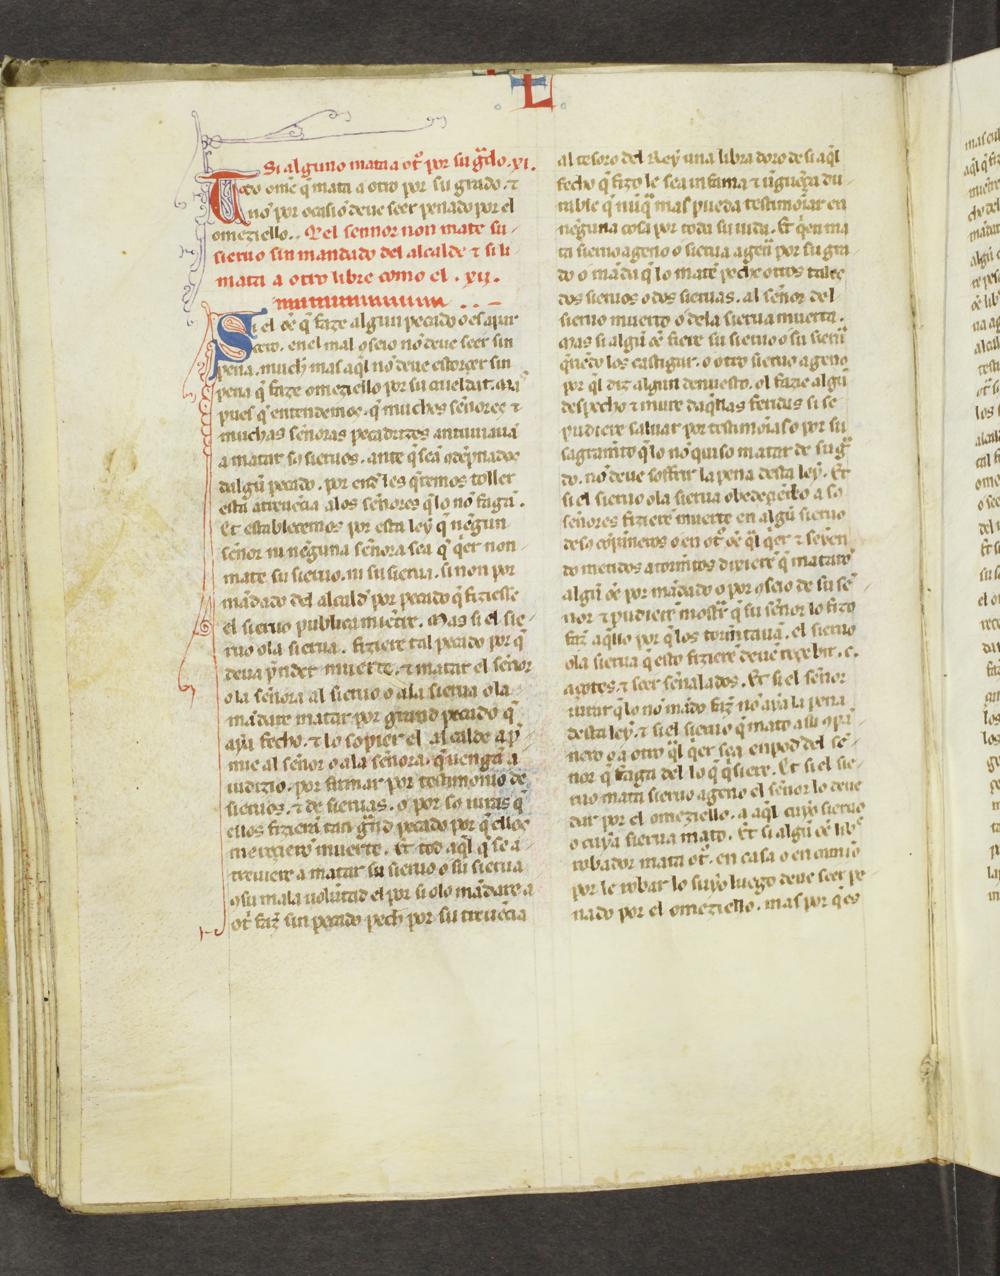 L
Si alguno mata a otr̃ por su grãdo .xi.
Todo om̃e q̃ mata a otro por su grado ⁊
no por ocasiõ deue seer penado por el
omeziello.. Qel sennor non mate su
sieruo sin mandado del alcalde ⁊ si lo
mata a otro libre como el . xii.
Si el õe q̃ faze algun pecado o es apar
cero. en el mal oseio no deue seer sin
pena. much̃ mas aq̃l no deue estorcer sin
pena q̃ faze omeziello por su crueldat. Ma
pues q̃ entendemos. q̃ muchos señores ⁊
muchas señoras pecadrizes antuuiauã
a matar so sieruos. ante q̃ seã ꝯdẽpnados
dalgũ pecado. por end̃ les q̃remos toller
esta atreuẽcia a los señores q̃ lo no fagã.
Et establecemos por esta ley q̃ nẽgun
señor ni nẽguna señora sea q̃ q̃er non
mate su sieruo. ni su sierua. si non por
mãdado del alcald̃ por pecado q̃ fiziesse
el sieruo publica miẽtre. Mas si el sie
ruo ola sierua. fiziere tal pecado por q̃
deua p̃nder muerte. ⁊ matar el señor
o la señora al sieruo o ala sierua ola
mãdare matar por grand pecado q̃
aya fecho. ⁊ lo sopier el alcalde ap̃
mie al señor o ala señora. q̃ uengã a
iudizio. por firmar por testimonio de
sieruos. ⁊ de sieruas. o por so iuras q̃
ellos fizierõ tan grãd pecado por q̃ ellos
mereciero muerte. Et tod aq̃l q̃ se a
treuiere a matar su sieruo o su sierua
ꝯ su mala volũtad el por si o lo mãdare a
otr̃ faz̃ sin pecado pech̃ por su treuẽcia
al tesoro del Rey una libra doro de si aq̃l
fecho q̃ fizo le sea infama ⁊ ũguẽça du
rable q̃ nũq̃ mas pueda testimoñar en
nẽguna cosa por toda su uida. Et q̃en ma
ta sieruo ageno o sierua agẽa por su gra
do o mãda q̃ lo matẽ peche otros tales
dos sieruos o dos sieruas. al señor del
sieruo muerto o dela sierua muerta.
Mas si algũ õe fiere su sieruo o su sieruã
q̃riẽdo los castigar. o otro sieruo ageno
por q̃l diz algun denuesto. ol fazie algũ
despecho ⁊ mure daq̃llas feridas si se
pudiere saluar por testimoñas o por su
sagramt̃o q̃ lo no quiso matar de su g̃
do. no deue soffrir la pena desta ley. Et
si el sieruo ola sierua obedeciẽdo a so
señores fizierẽ muerte en algũ sieruo
de so cõpañeros o en otr̃ õe q̃l q̃er ⁊ seyen
do metidos a tormẽtos dixierẽ q̃ mataro
algũ õe por mãdado o por ꝯseio de su se
nor ⁊ pudierẽ mostr̃ q̃ su señor lo fizo
faz̃ aq̃llo por q̃ los tormẽtauã. el sieruo
ola sierua q̃ esto fizierẽ deuẽ recebir. c.
açotes. ⁊ seer señalados. Et si el señor
iurar q̃ lo no mãdo faz̃ no aya la pena
desta ley. ⁊ si el sieruo q̃ mato a su ꝯpã
nero o a otro q̃l q̃er sea en pod̃ del se
nor q̃ faga del lo q̃ q̃siere. Et si el sie
ruo mata sieruo ageno el señor lo deue
dar por el omeziello. a aq̃l cuyo sieruo
o cuya sierua mato. Et si algũ õe libr̃
robador mata otr̃. en casa o en camio
por le robar lo suyo luego deue seer pe
nado por el omeziello. mas por q̃ es